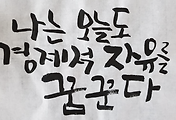 나는 오늘도
경계적 자유를
꿈꾼다